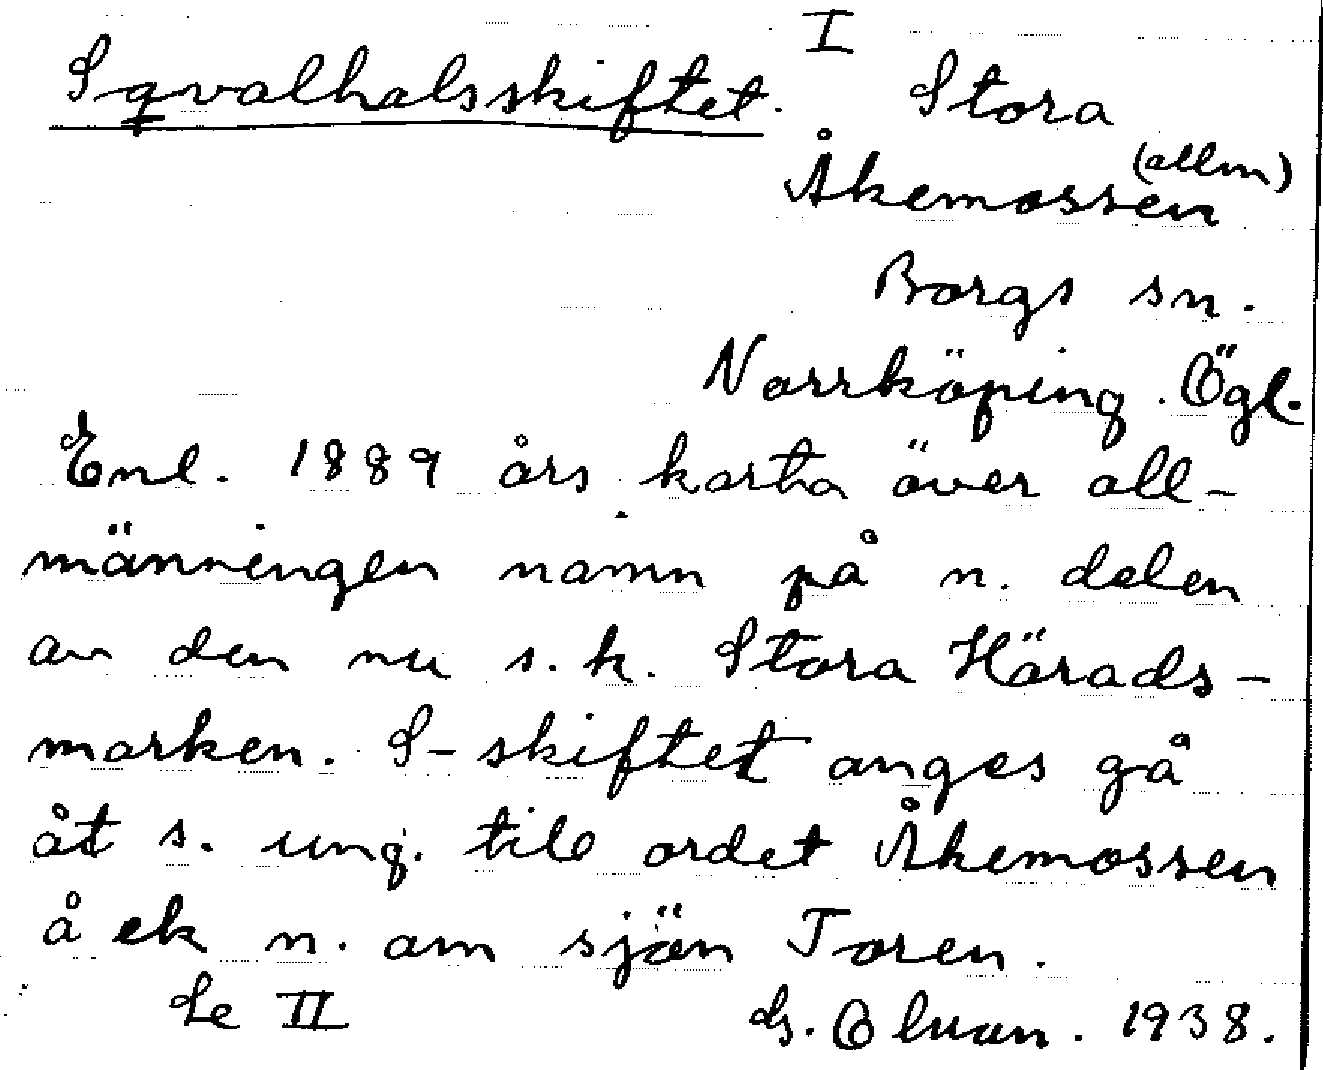 I
Sqvalhalsskiftet. Stora
Åkemossen (allm)
Borgs sn.
Norrköping. Ögl.
Enl. 1889 års karta över all-
männingen namn på n. delen
av den nu s.k. Stora Härads-
marken. S-skiftet anges gå
åt s. ung. till ordet Åkemossen
å ek n. om sjön Toren.
Se II
1938.